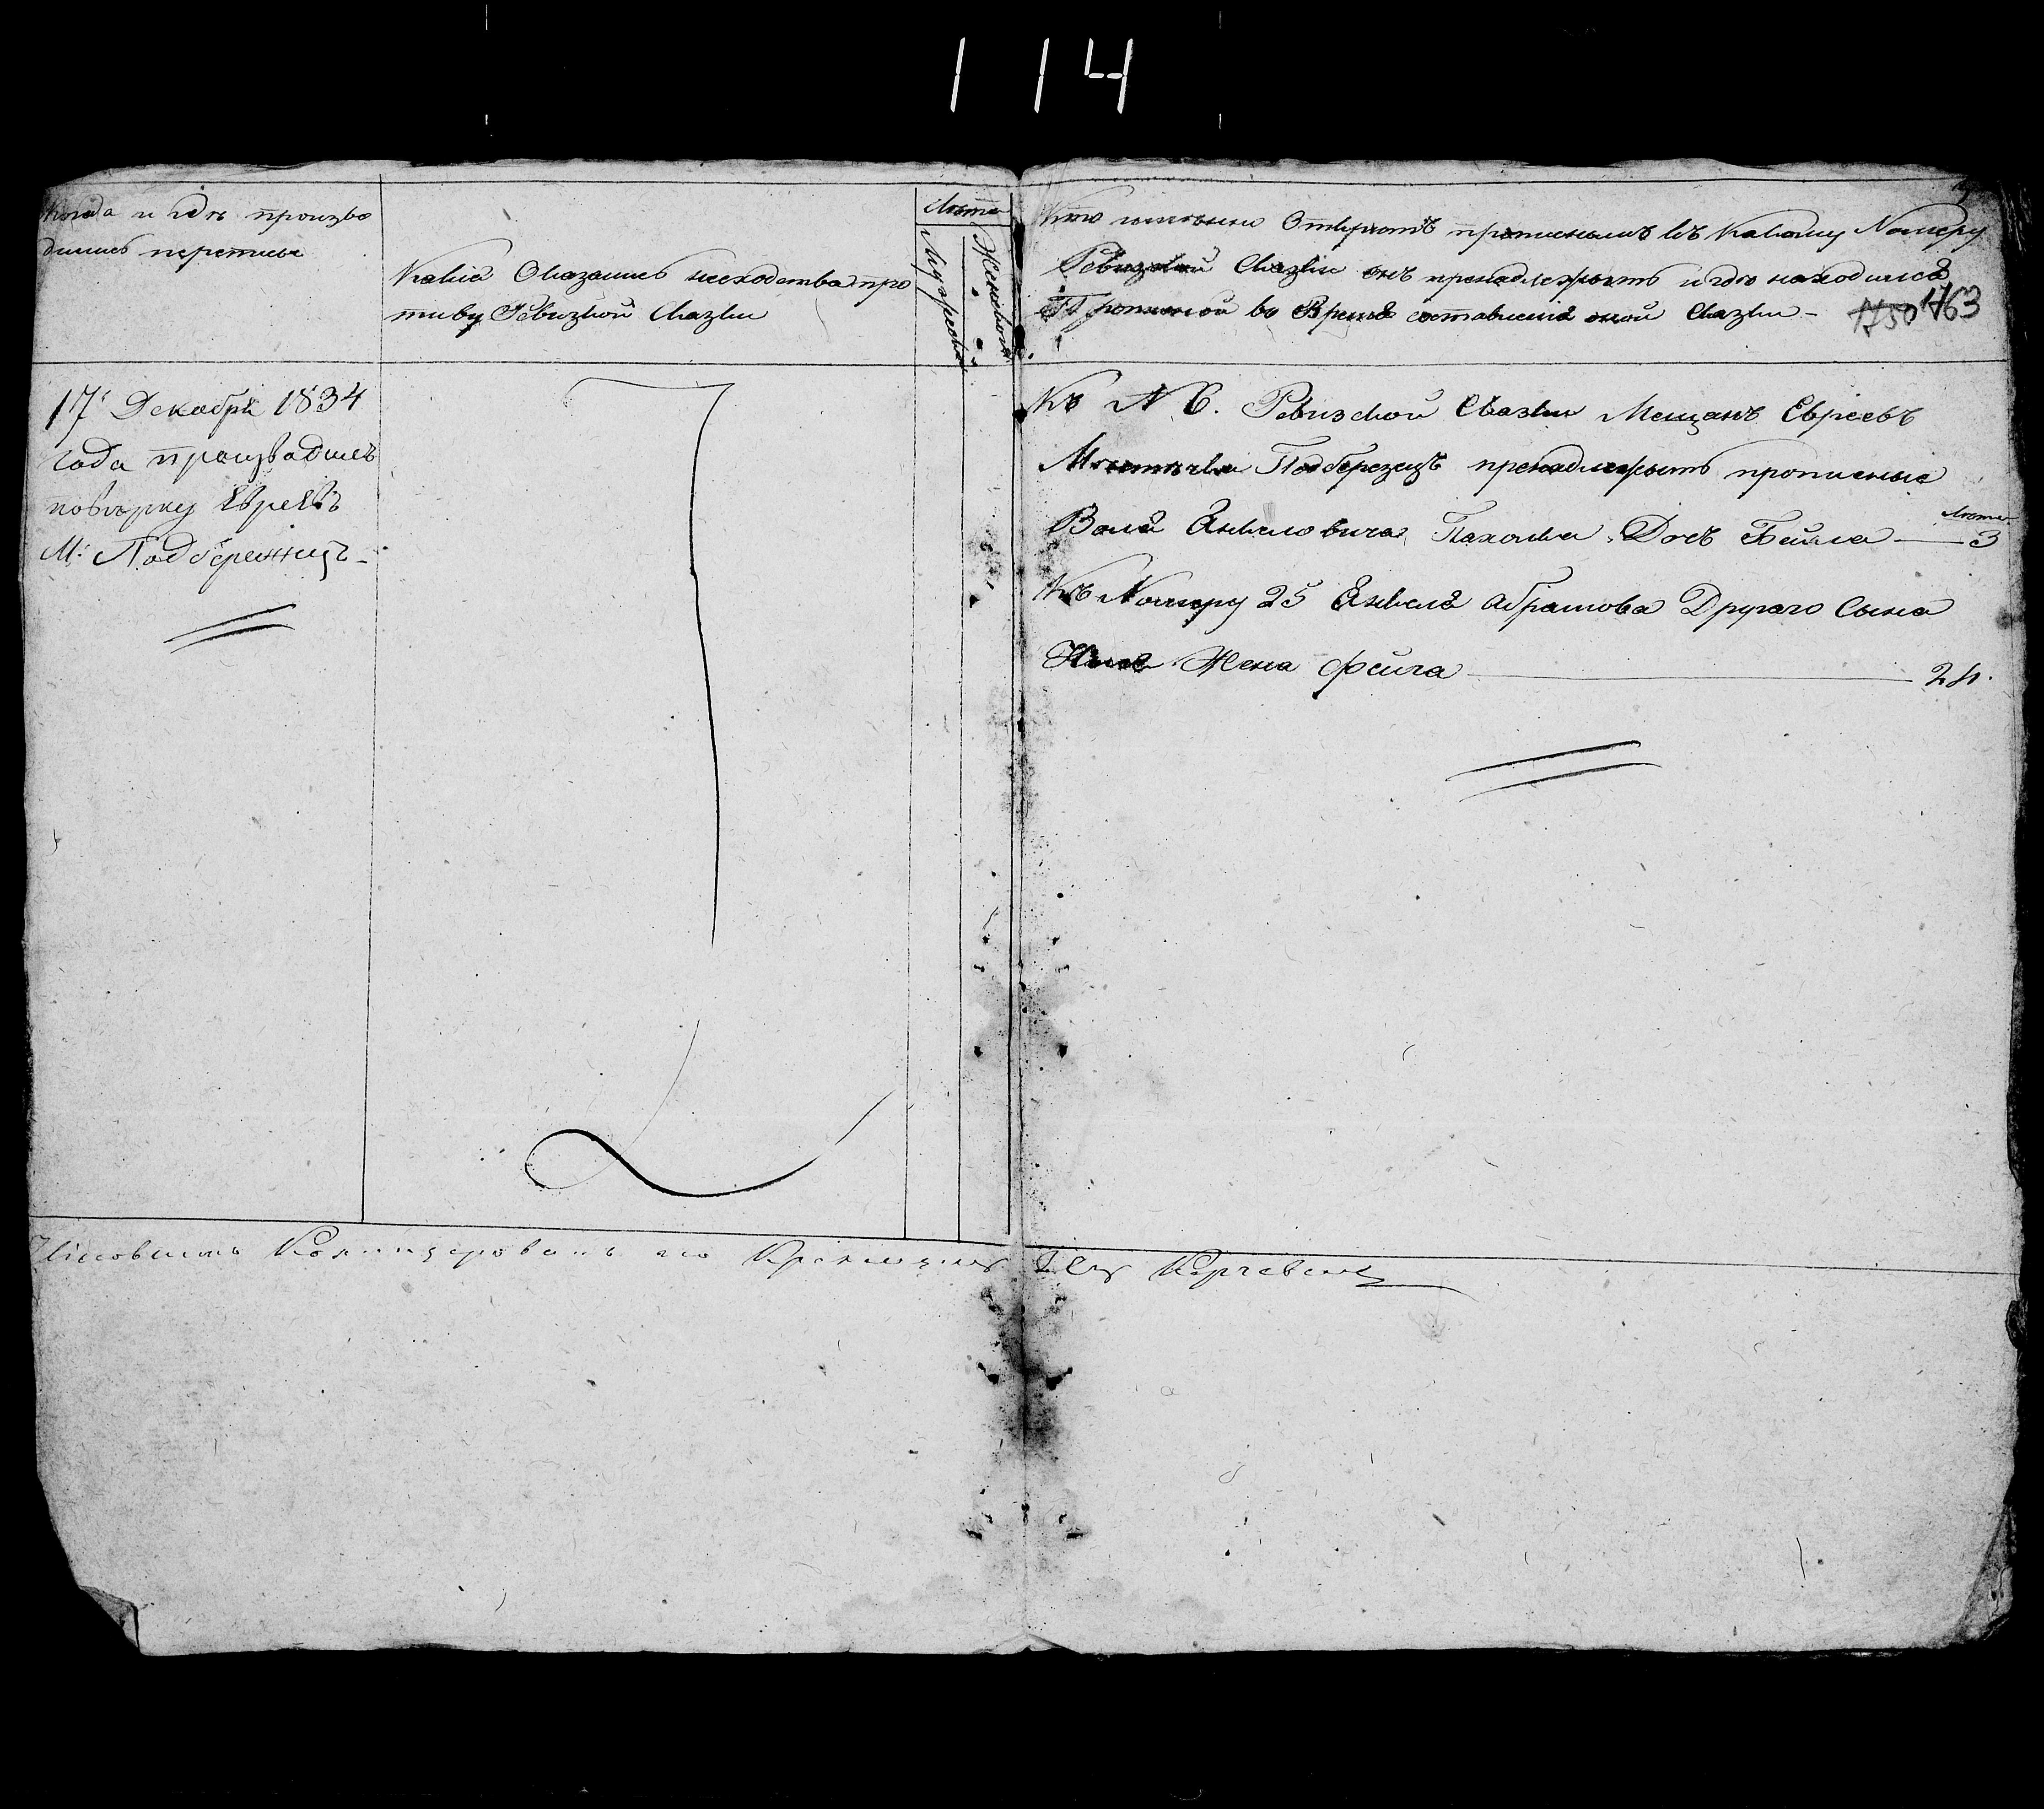 114
Когда и гдѣ произво
дились перепись
Какіе Оказались несходства про
тиву Ревизкой Сказки
Лѣта
Мужеска
Женска
Кто имянны Открытъ прописнымъ къ Какому Номеру
Ревизской Сказки онъ пренадлежытъ и гдѣ находился
Прописной во Время составленія оной Сказки
1750 1763
17 Декабря 1834
года произвадилъ
повѣрку Евреевъ
М: Подбережецъ
Къ N 6. Ревизской Сказки Мещанъ Евреевъ
Мѣстечка Подберезецъ пренадлежытъ прописные
Янкеловича Дочь Бейла Лѣта 3
Къ Номеру 25 Янкеля Абрамова Другаго Сына
Жена Фейга 21.